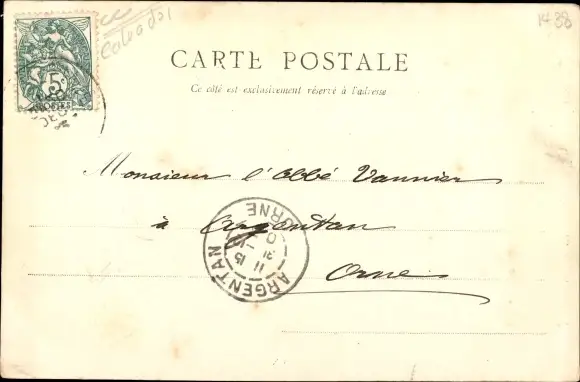 Calvados
1438
5c
POSTES
CARTE POSTALE
Ce côté est exclusivement réservé à l'adresse
Monsieur l'Abbé Vannier
à Argentan
Orne
ARGENTAN
ORNE
11 15
21